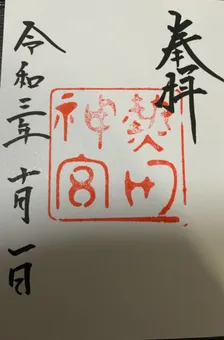 奉拝
熱田
神宮
令和三年
十月一日